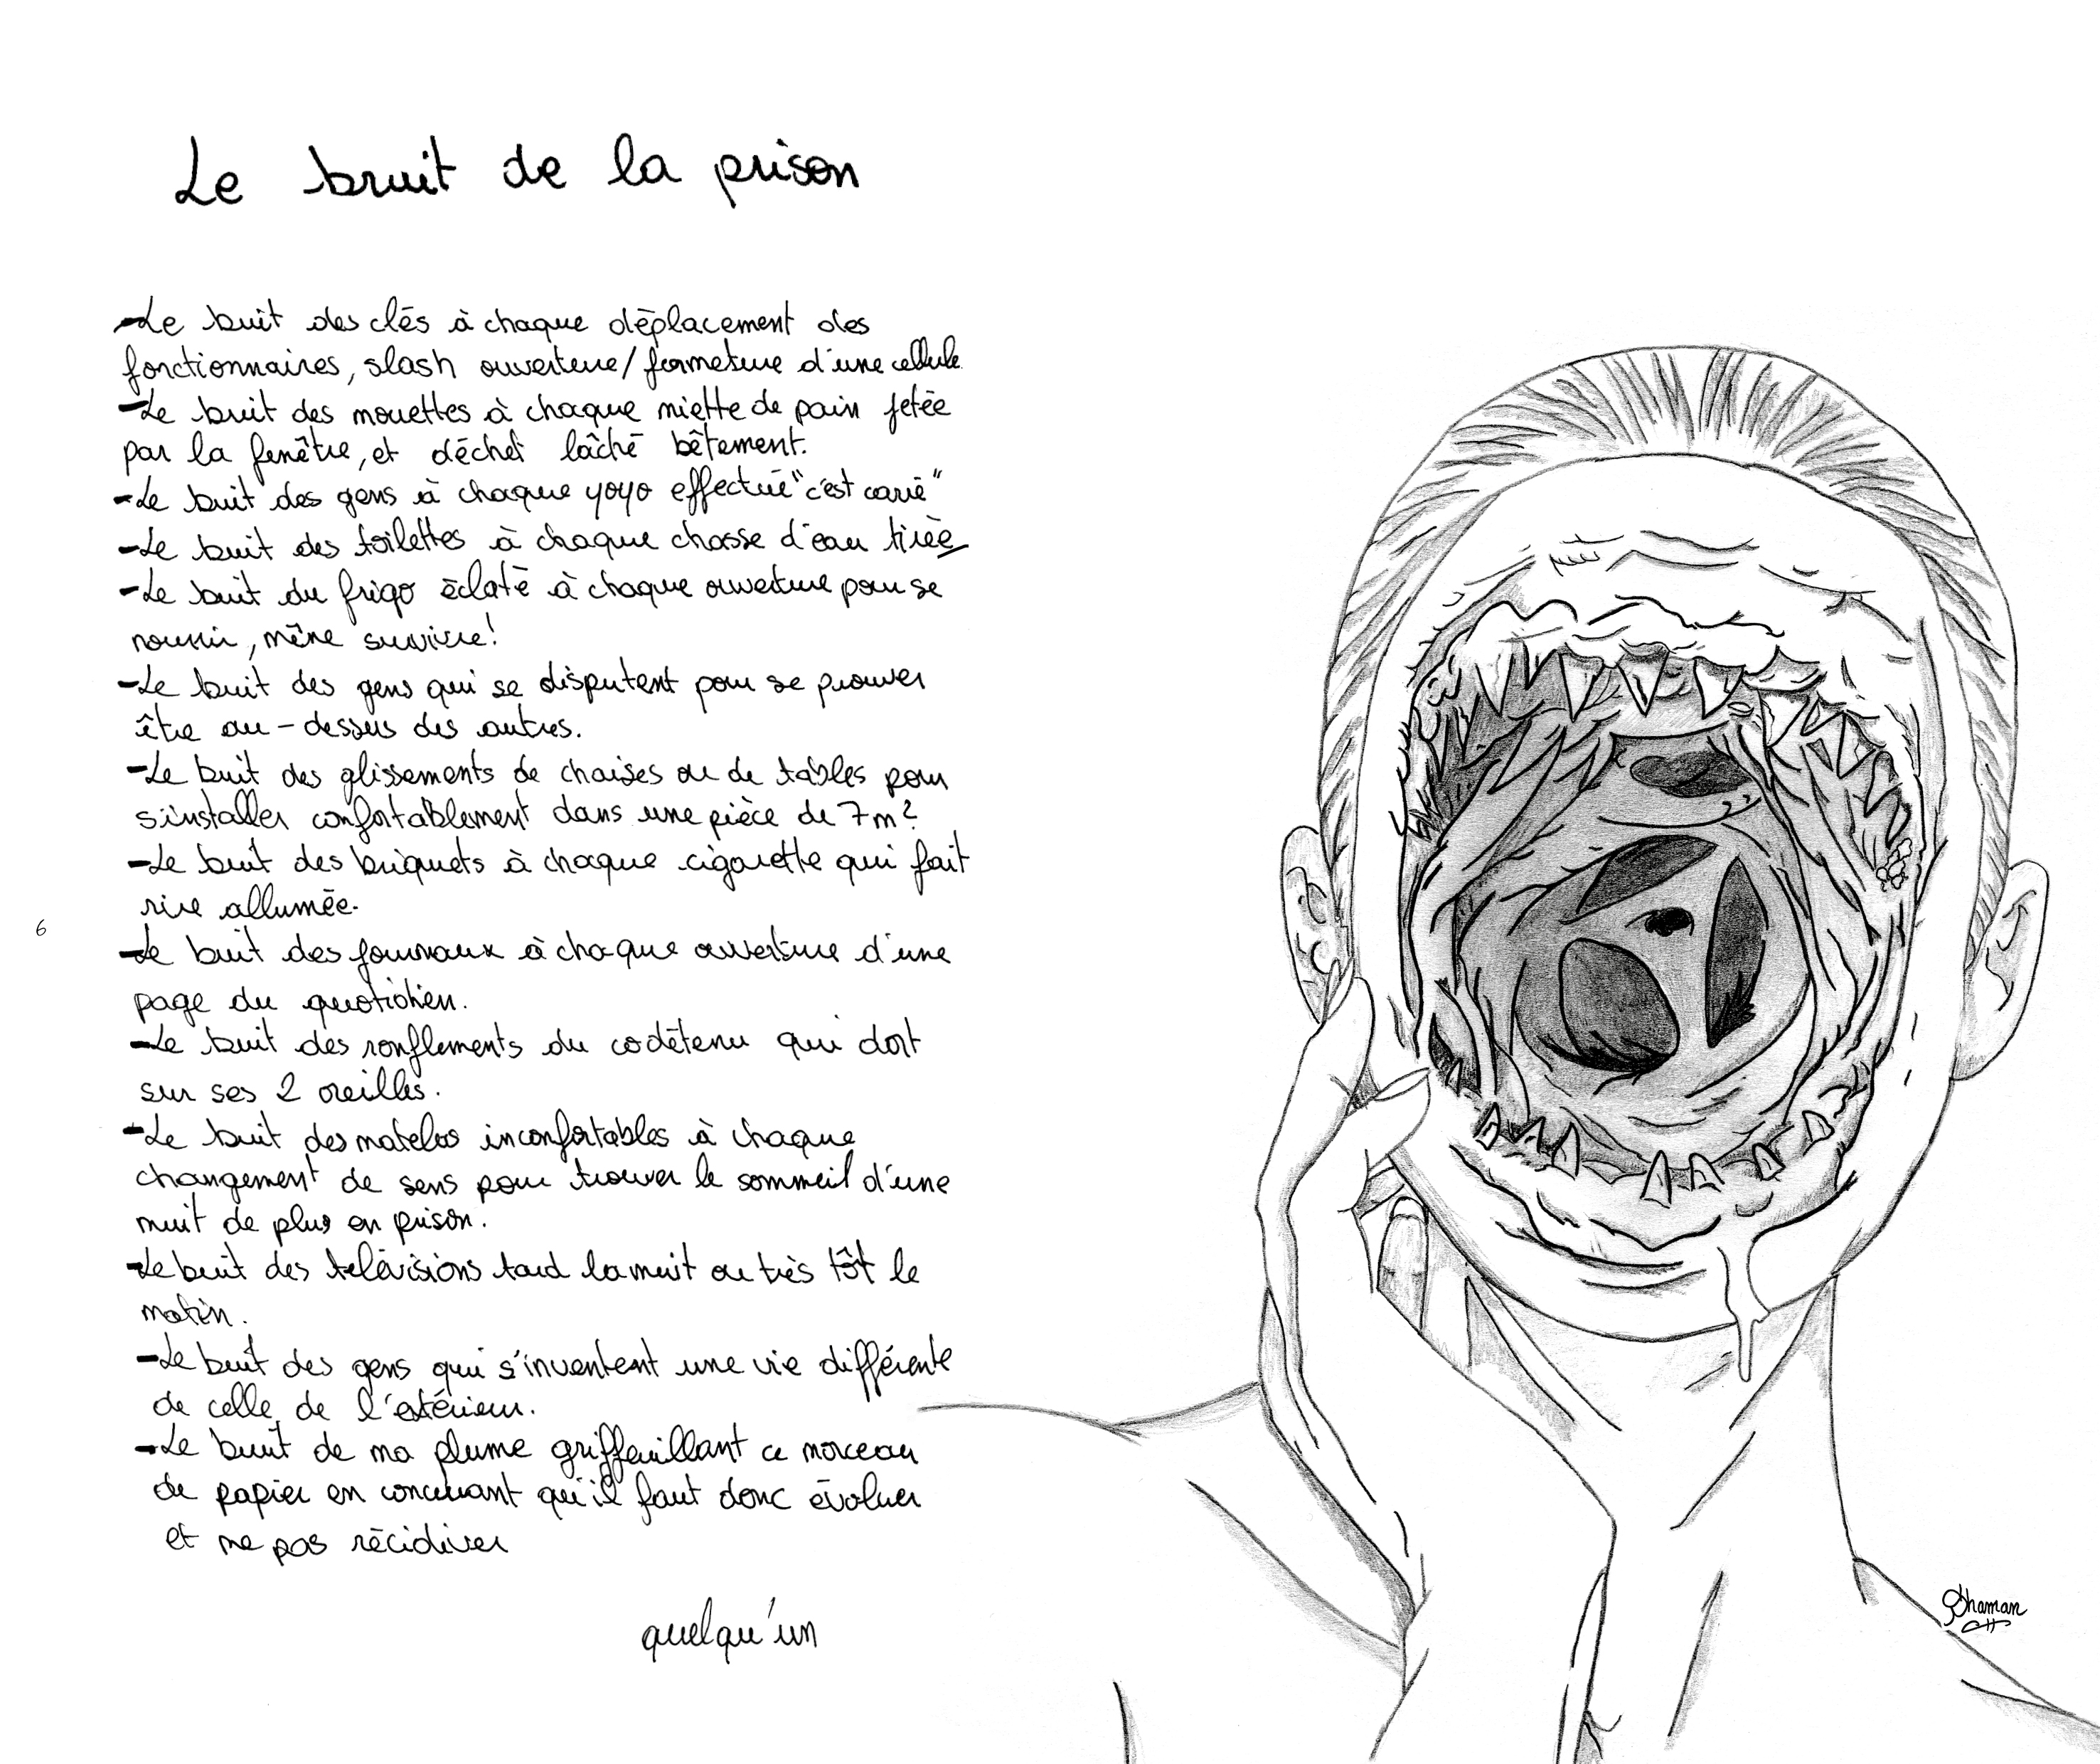 Le bruit de la prison
-Le bruit des clés à chaque déplacement des
fonctionnaires, slash ouverture/fermeture d'une cellule.
-Le bruit des mouettes à chaque miette de pain jetée
par la fenêtre, et déchet lâché bêtement.
-Le bruit des gens à chaque yoyo effectué "c'est carré"
-Le bruit des toilettes à chaque chasse d'eau tirée
-Le bruit du frigo éclaté à chaque ouverture pour se
nourrir, même survivre!
-Le bruit des gens qui se disputent pour se prouver
être au-dessus des autres.
-Le bruit des glissements de chaises ou de tables pour
s'installer confortablement dans une pièce de 7m²
-Le bruit des briquets à chaque cigarette qui fait
rire allumée.
-Le bruit des journaux à chaque ouverture d'une
page du quotidien.
-Le bruit des ronflements du codétenu qui dort
sur ses 2 oreilles.
-Le bruit des matelas inconfortables à chaque
changement de sens pour trouver le sommeil d'une
nuit de plus en prison.
-Le bruit des télévisions tard la nuit ou très tôt le
matin.
-Le bruit des gens qui s'inventent une vie différente
de celle de l'extérieur.
-Le bruit de ma plume griffeuillant ce morceau
de papier en concluant qu'il faut donc évoluer
et ne pas récidiver
quelqu'un
6
Shaman